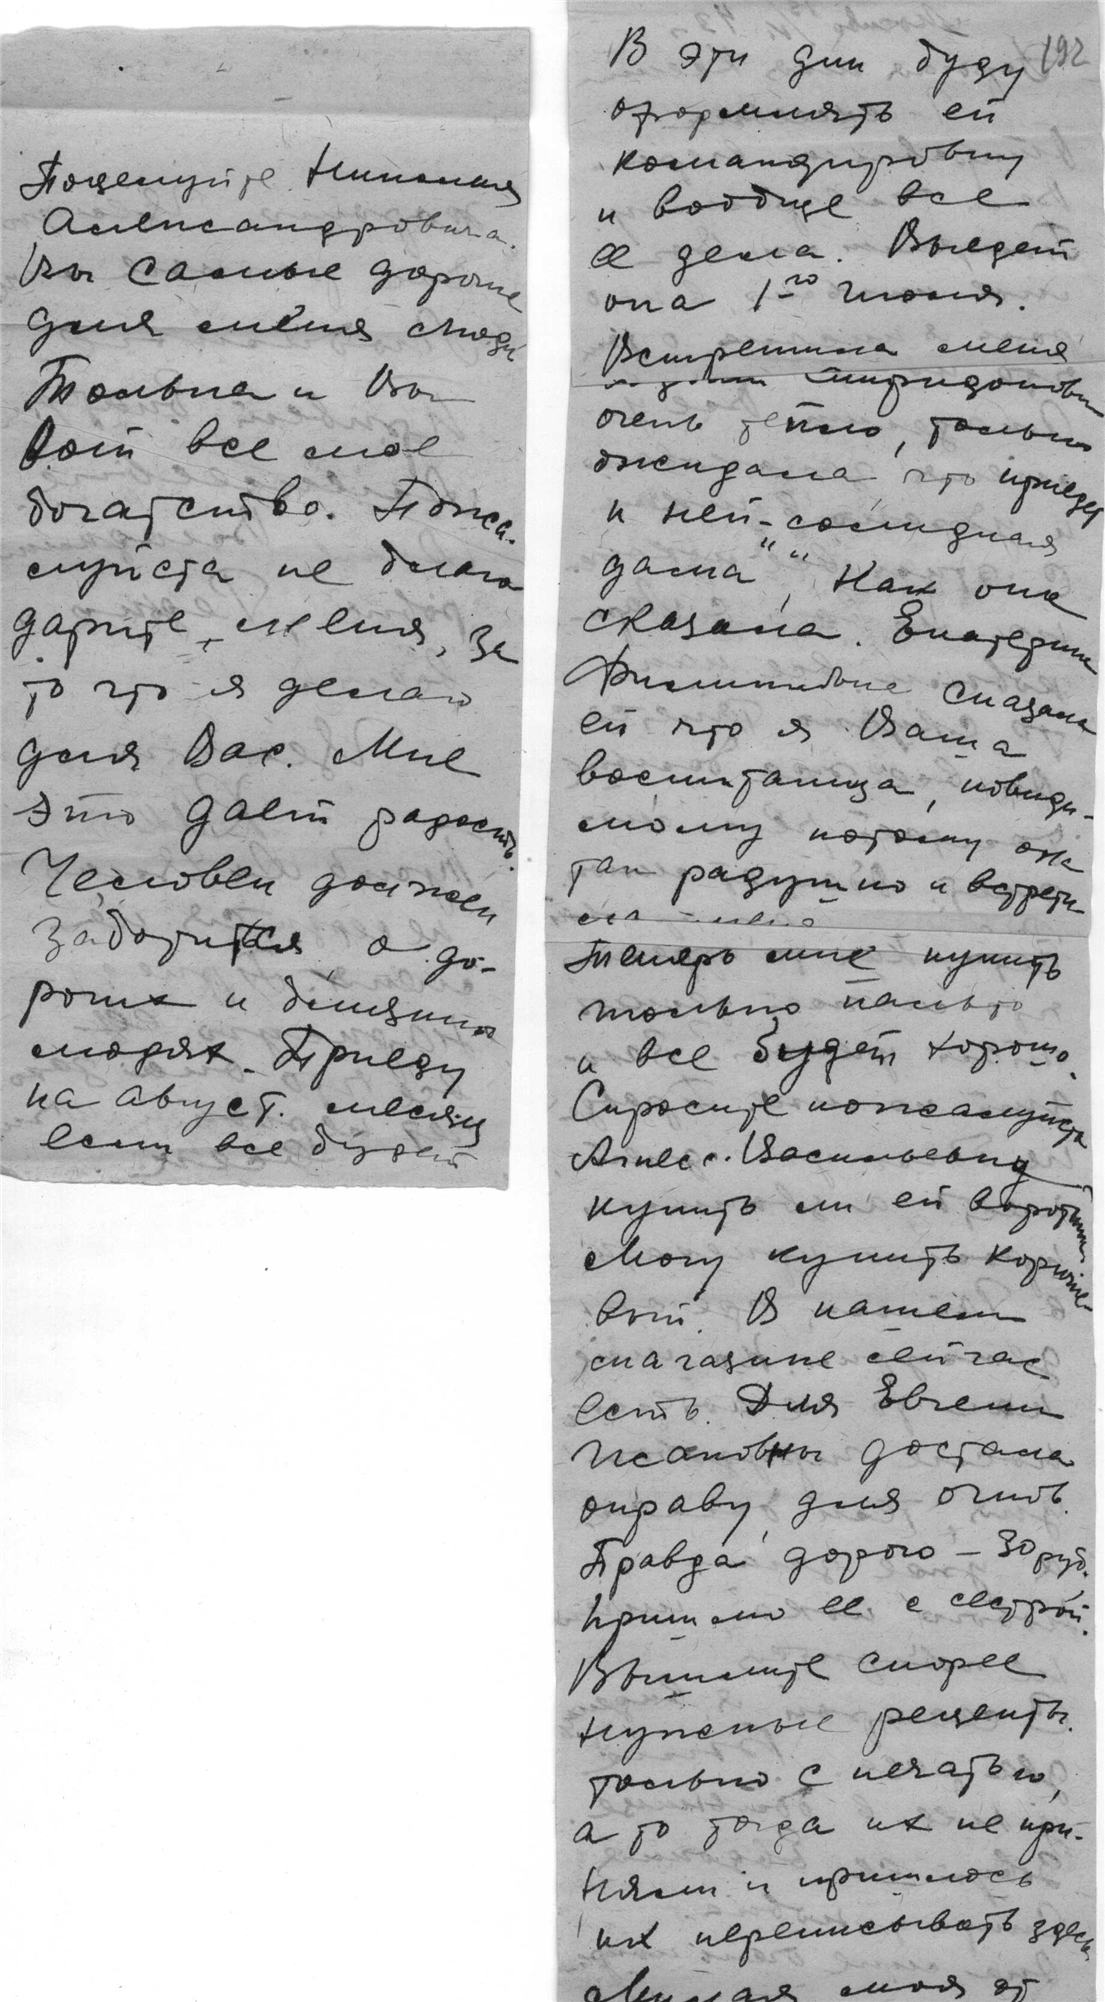 Поцелуйте Николая
Александровича.
Вы самые дорогие
для меня люди
Только и Вы
Вот все мое
богатство. Пожа-
луйста не благо
дарите меня, за
то что я делаю
для Вас. Мне
это дает радость.
Человек должен
заботится о до-
рогих и близких
людях. Приеду
на август. месяц
если все будет
192
В эти дни буду
оформлять ей
командировку
и вообще все
ее дела. Выедет
она 1го июля.
Встретила меня
Спиридоновна
очень тепло, только
ожидала, что приедет
к ней - "солидная
дама", как она
сказала. Екатерина
Филипповна сказала
ей что я Ваша
воспитаница, повиди-
мому потому она
так радушно и встрети
ла меня
Теперь мне купить
только пальто
и все будет хорошо.
Спросите пожалуйста
Алекс. Васильевну
купить ли ей воротник
Могу купить коричне-
вый. В нашем
магазине сейчас
есть. Для Евгении
Исаковны достала
оправу для очков.
Правда дорого - 30 руб.
Пришлю ее с сестрой.
Вышлите скорее
нужные рецепты.
только с печатью,
а то тогда их не при-
няли и пришлось
их переписывать здесь
Милая моя от